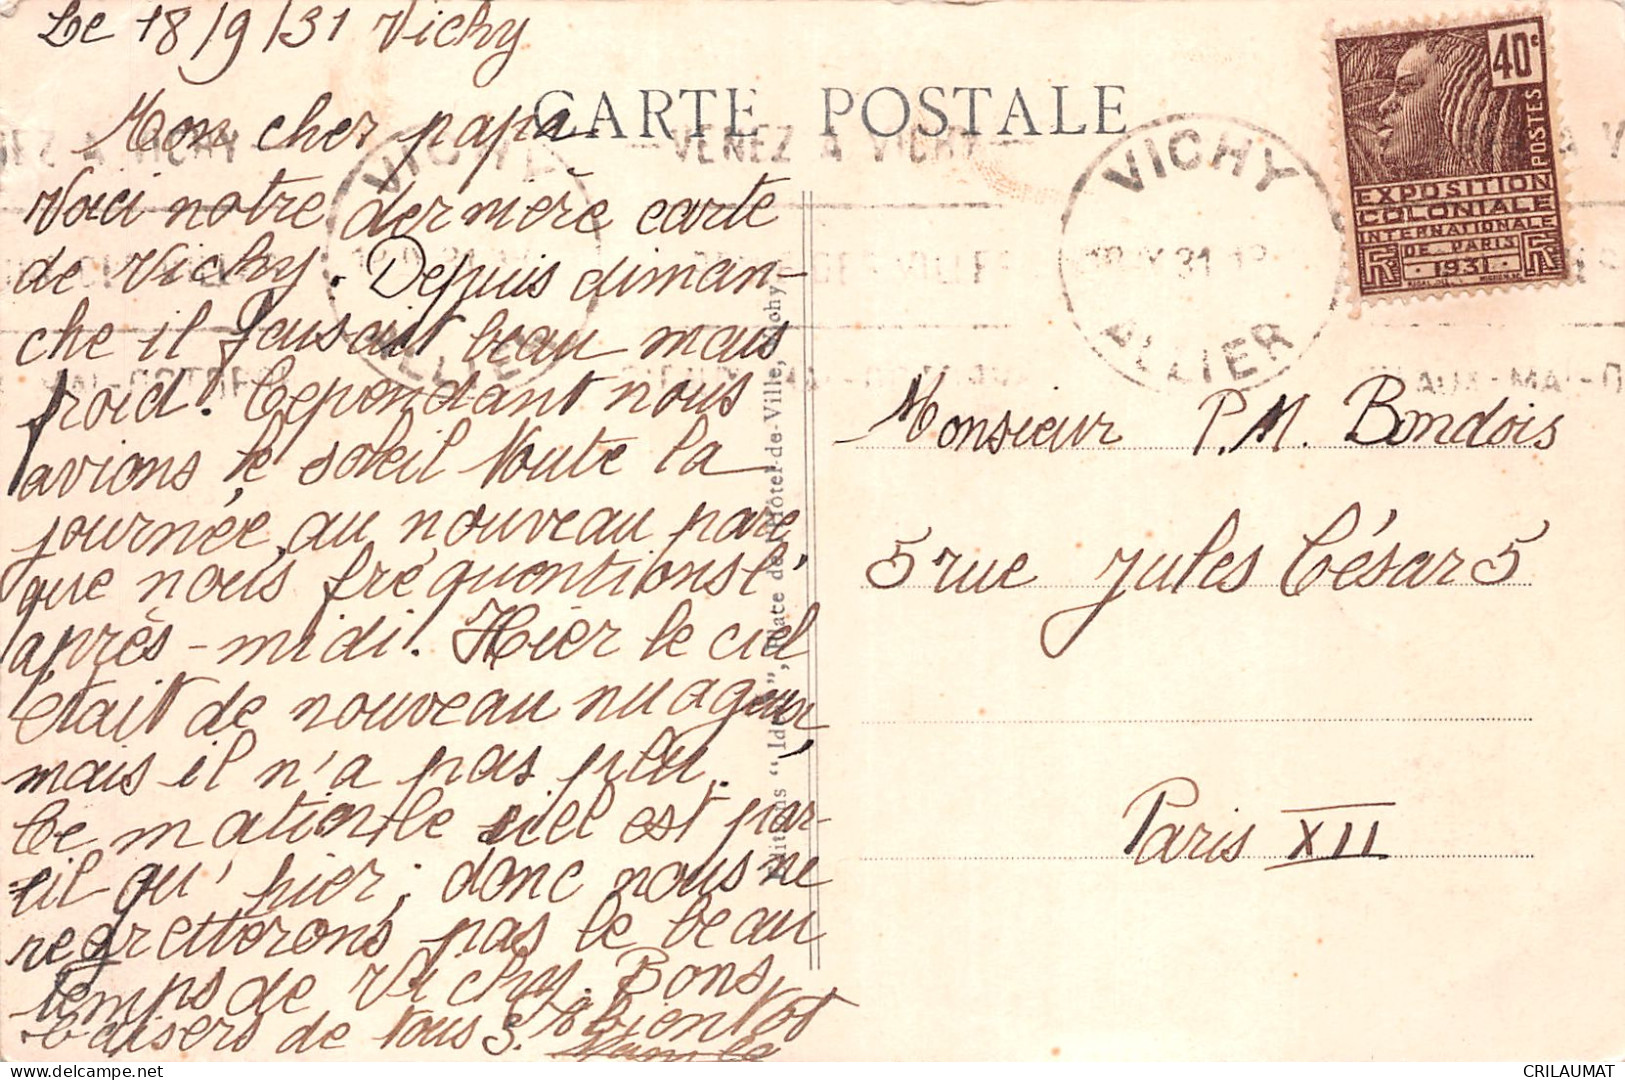 Le 18/9/31 Vichy
Mon cher papa
Voici notre dernière carte
de Vichy. Depuis diman-
che il faisait beau mais
froid. Cependant nous
avions le soleil toute la
journée, au nouveau parc
que nous fréquentions l'
après-midi. Hier le ciel
était de nouveau nuageux
mais il n'a pas plu.
Ce matin le ciel est par-
eil qu'hier; donc nous ne
regretterons pas le beau
temps de Vichy. Bons
baisers de tous 3. A bientot
CARTE POSTALE
VENEZ A VICHY
VICHY
ALLIER
VICHY
18 IX 31
ALLIER
40c
POSTES
EXPOSITION
COLONIALE
INTERNATIONALE
DE PARIS
1931
Editions "Idéal", Place de l'Hôtel-de-Ville, Vichy
Monsieur P.M. Bondois
5 rue Jules César 5
Paris XII
CRILAUMAT